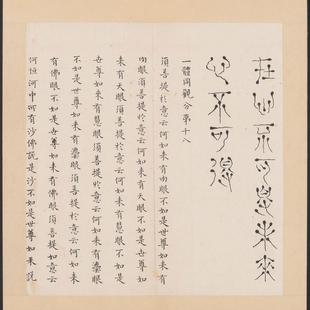 在心不可得未來
心不可得
一體同觀分第十八
須菩提於意云何如來有肉眼不如是世尊如來有
肉眼須菩提於意云何如來有天眼不如是世尊如
來有天眼須菩提於意云何如來有慧眼不如是
世尊如來有慧眼須菩提於意云何如來有灋眼
不如是世尊如來有灋眼須菩提於意云何如來
有佛眼不如是世尊如來有佛眼須菩提於意云
何恒河中所有沙佛說是沙不如是世尊如來說